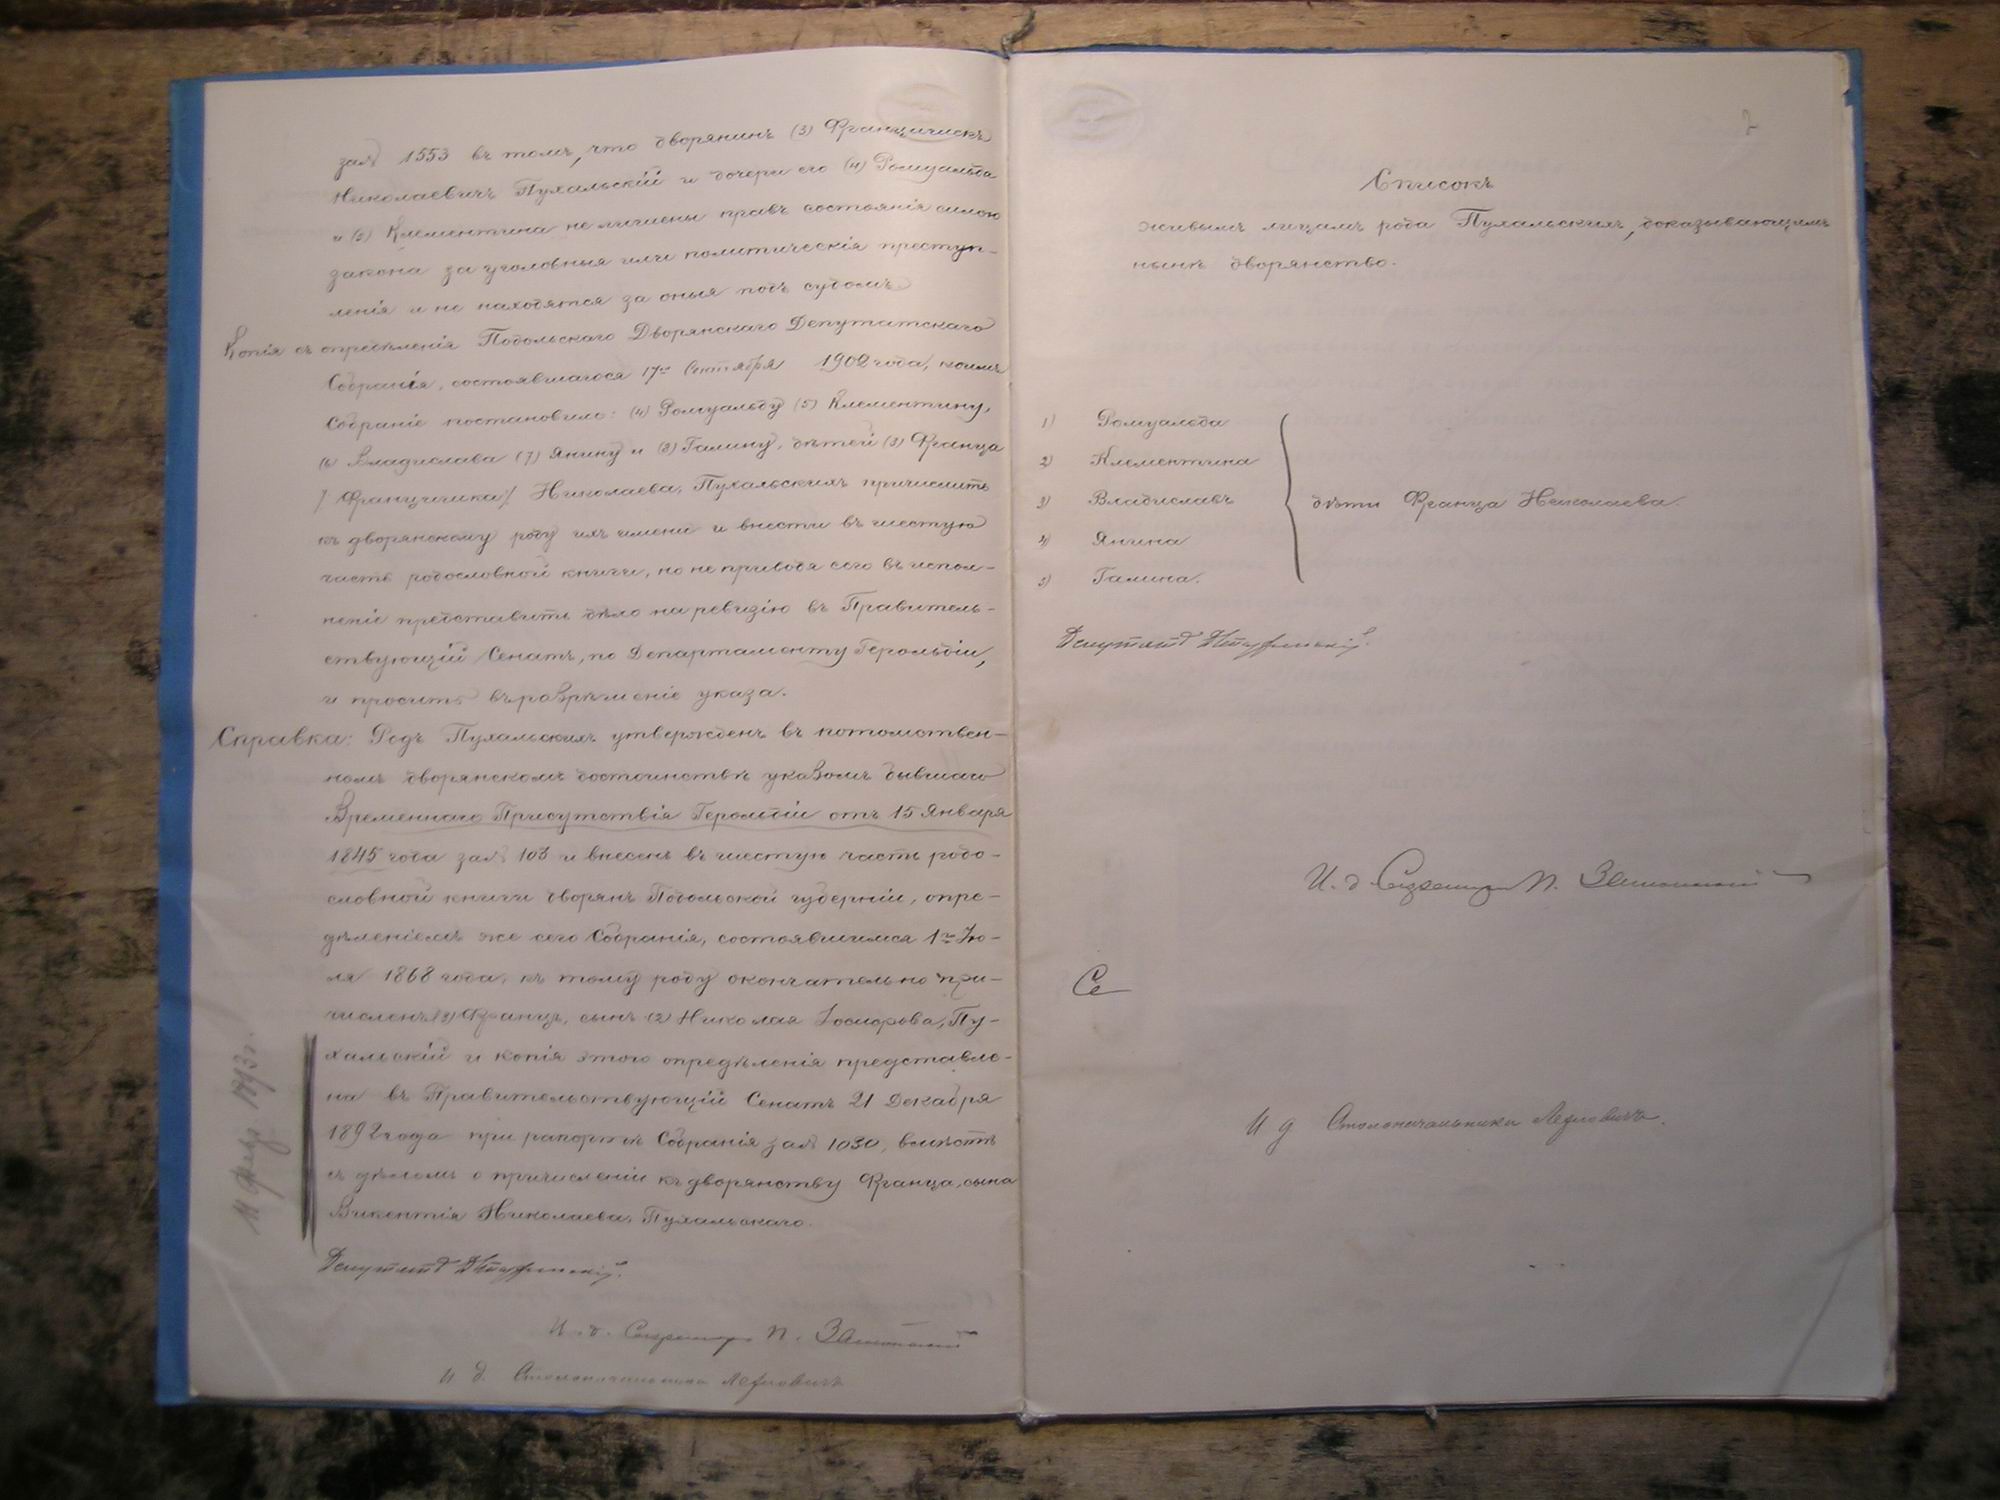 за № 1553 въ томъ, что дворянинъ (3) Францишекъ
Николаевичъ Пухальскій и дочери его (4) Ромуальда
и (5) Клементина не лишены правъ состоянія силою
закона за уголовныя или политическія преступ-
ленія и не находятся за оныя подъ судомъ.
Копія съ опредѣленія Подольскаго Дворянскаго Депутатскаго
Собранія, состоявшагося 17го Сентября 1902 года, коимъ
Собраніе постановило: (4) Ромуальду (5) Клементину,
(6) Владислава (7) Янину и (8) Галину, дѣтей (3) Франца
/Францишка/ Николаева, Пухальскихъ причислить
къ дворянскому роду ихъ имени и внести въ шестую
часть родословной книги, но не приводя сего въ испол-
неніе представить дѣло на ревизію въ Правитель-
ствующій Сенатъ, по Департаменту Герольдіи,
и просить въ разрѣшеніе указа.
Справка: Родъ Пухальскихъ утвержденъ въ потомствен-
номъ дворянскомъ достоинствѣ указомъ бывшаго
Временнаго Присутствія Герольдіи отъ 15 Января
1845 года за № 103 и внесенъ въ шестую часть родо-
словной книги дворянъ Подольской губерніи, опре-
дѣленіемъ же сего Собранія, состоявшимся 1го Ію-
ля 1868 года, къ тому роду окончательно при-
численъ (3) Францъ, сынъ (2) Николая Іосифова, Пу-
хальскій и копія этого опредѣленія представле-
на въ Правительствующій Сенатъ 21 Декабря
1892 года при рапортѣ Собранія за № 1030, вмѣстѣ
съ дѣломъ о причисленіи къ дворянству Франца, сына
Викентія Николаева, Пухальскаго.
11 февр. 1893 г.
Депутатъ
И. д. Секретаря П.
И д. Столоначальника
2
Списокъ
живымъ лицамъ рода Пухальскихъ, доказывающимъ
нынѣ дворянство.
1) Ромуальда
2) Клементина
3) Владиславъ
дѣти Франца Николаева.
4) Янина
5) Галина.
Депутатъ
И. д. Секретаря П.
Се
И д Столоначальника